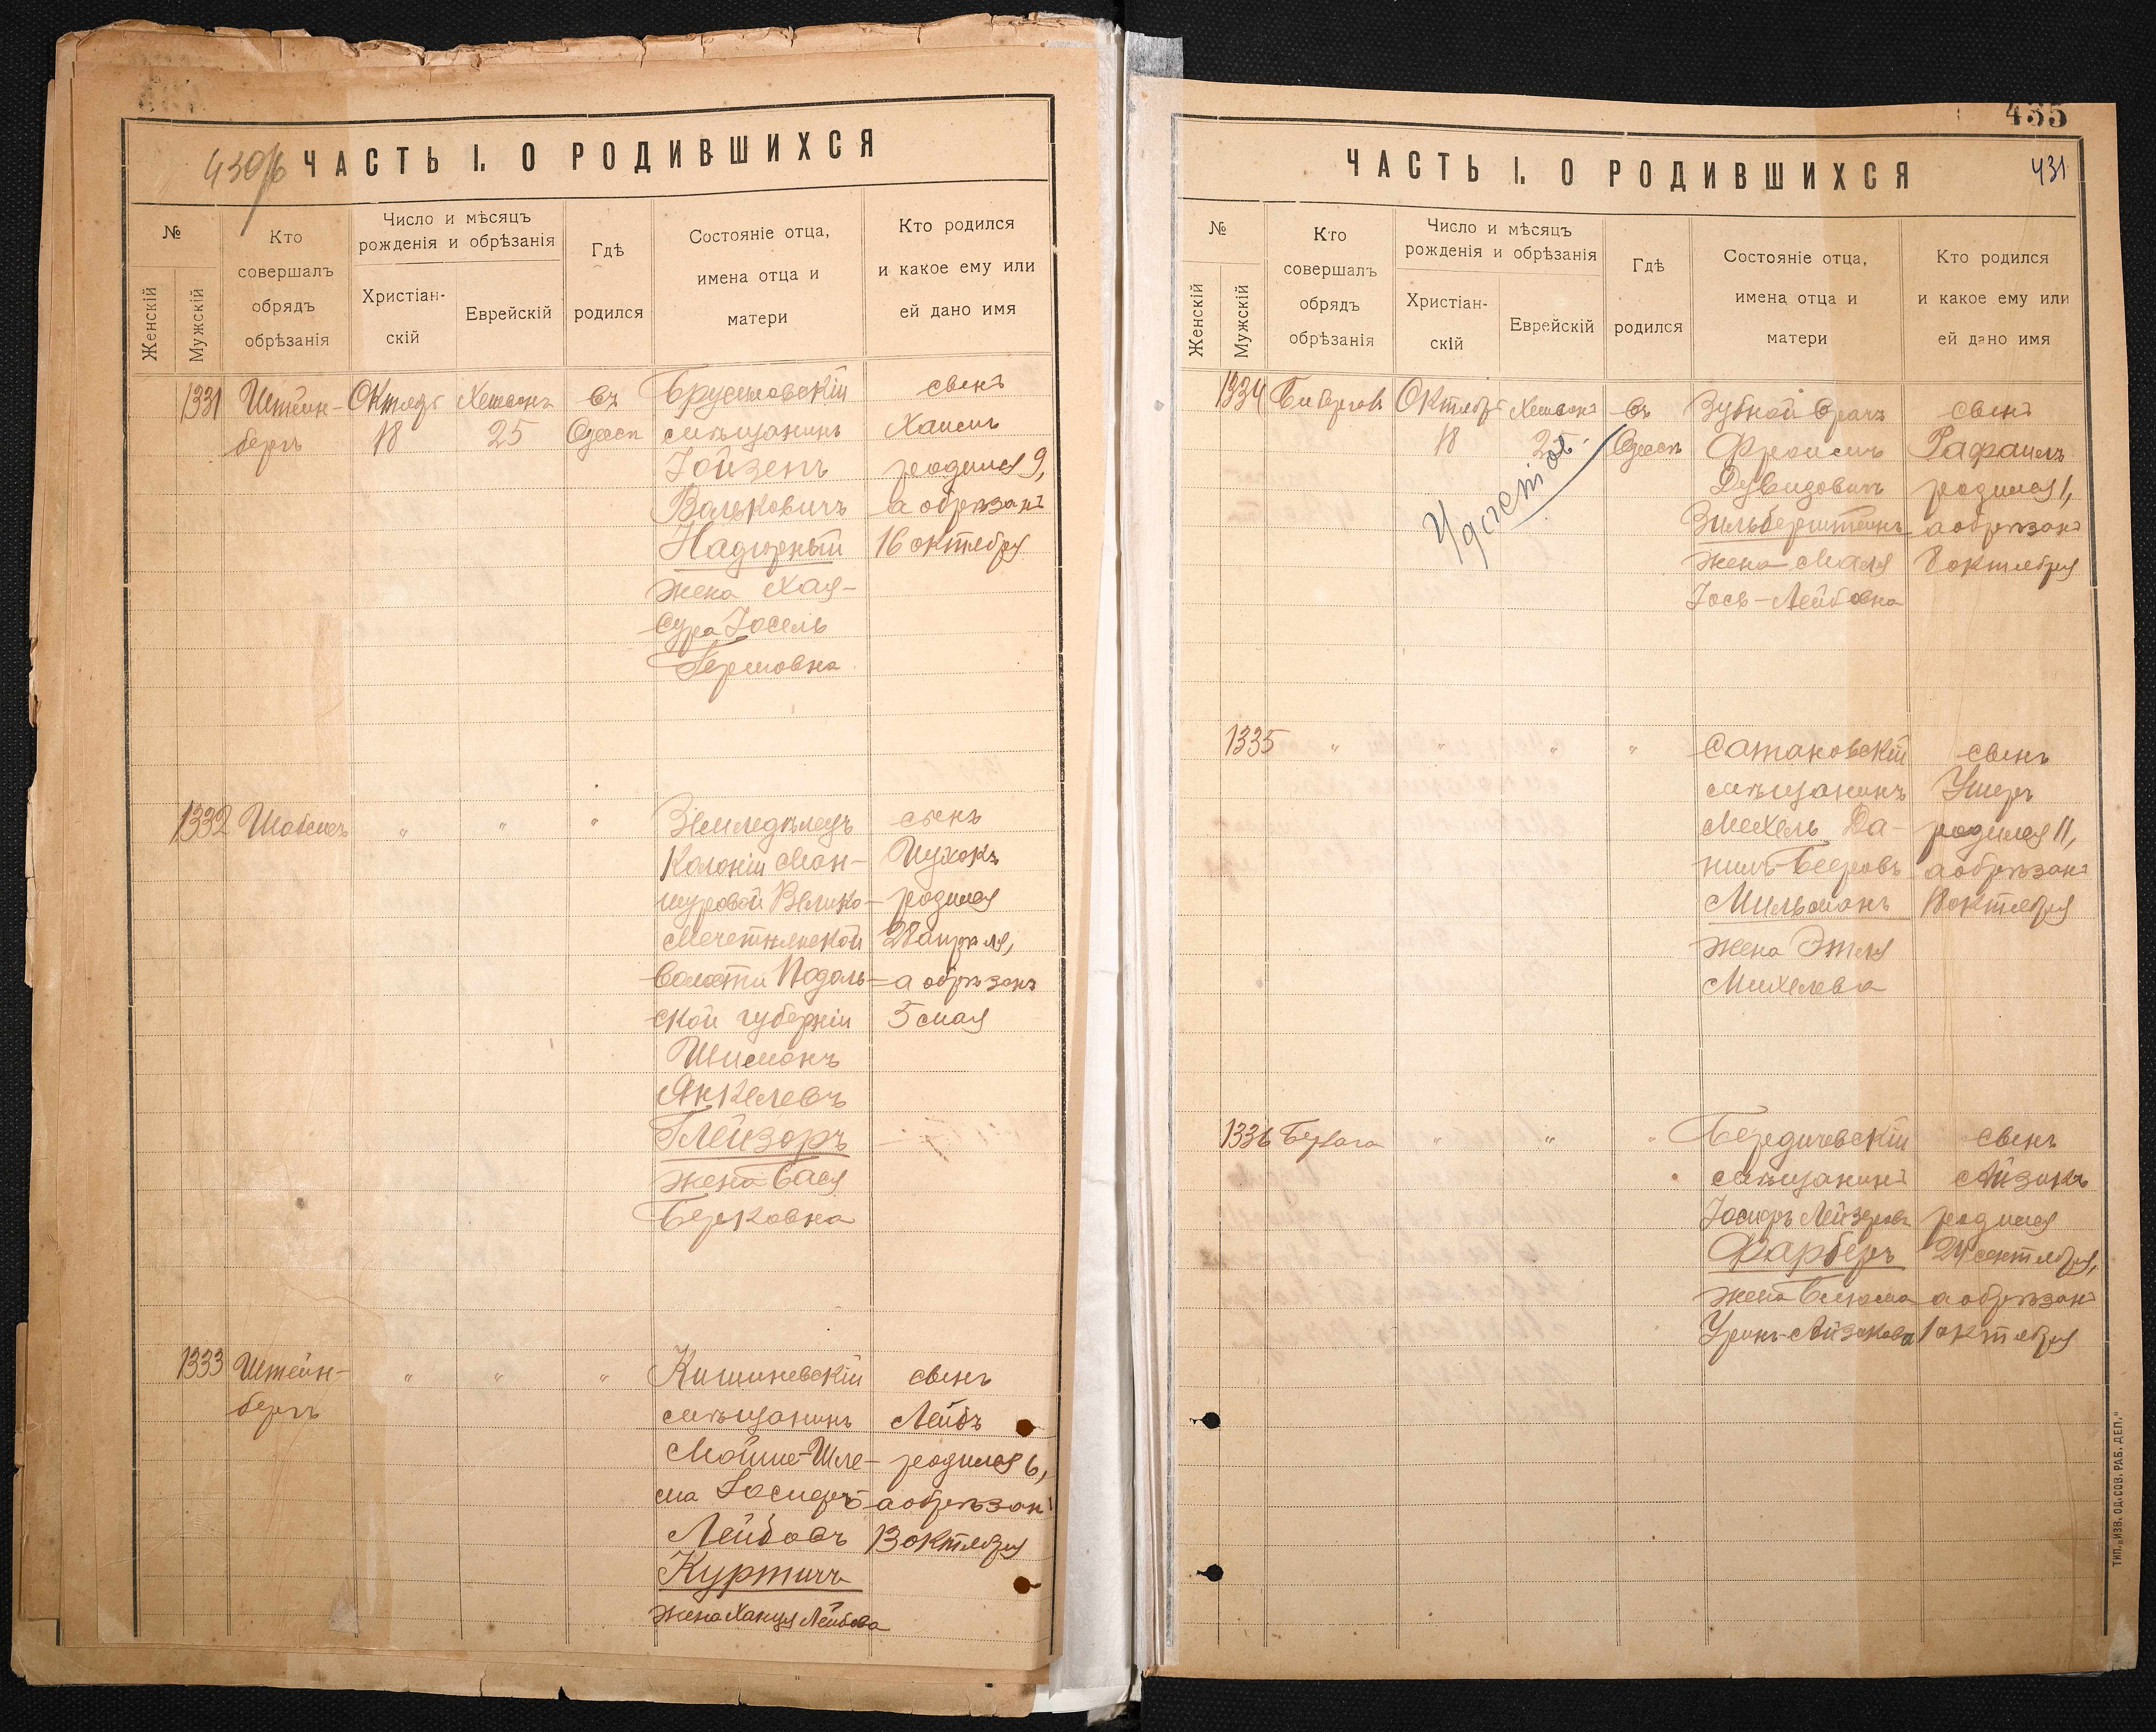 430/б
ЧАСТЬ I. О РОДИВШИХСЯ
№
Женскій
Мужскій
Кто
совершалъ
обрядъ
обрѣзанія
Число и мѣсяцъ
рожденія и обрѣзанія
Христіан-
скій
Еврейскій
Гдѣ
родился
Состояніе отца,
имена отца и
матери
Кто родился
и какое ему или
ей дано имя
1331
Штейн-
бергъ
18
25
въ
Брусиловскій
мѣщанинъ
Іойзепъ
Вольковичъ
Надюрный
жена Хая-
Сура Іосель
Гершовна
сынъ
Хаимъ
родился 9,
а обрѣзанъ
16 октября
1332
"
"
"
Земледѣлецъ
Колоніи Ман-
журовой Велико-
Мечетнянской
Волости Подоль-
ской губерніи
Шимонъ
Янкелевъ
Глейзеръ
жена Бася
Берковна
сынъ
родился
28 апрѣля,
а обрѣзанъ
5 мая
1333
Штейн-
бергъ
"
"
"
Кишиневскій
мѣщанинъ
Мойше-Шле-
ма Іосифъ-
Лейбовъ
Куртичъ
жена Ханця Лейбова
сынъ
Лейбъ
родился 6,
а обрѣзанъ
13 октября
435
431
ЧАСТЬ I. О РОДИВШИХСЯ
№
Женскій
Мужскій
Кто
совершалъ
обрядъ
обрѣзанія
Число и мѣсяцъ
рожденія и обрѣзанія
Христіан-
скій
Еврейскій
Гдѣ
родился
Состояніе отца,
имена отца и
матери
Кто родился
и какое ему или
ей дано имя
1334
18
25
въ
Зубной врачъ
Фроимъ
Дувидовичъ
Зильберштейнъ
жена Маля
Іось-Лейбовна
сынъ
Рафаилъ
родился 1,
а обрѣзанъ
8 октября
1335
"
"
"
"
Сатановскій
мѣщанинъ
Мехель Да-
нилъ-Бееровъ
Мильманъ
жена Этля
Михелева
сынъ
Ушеръ
родился 11,
а обрѣзанъ
18 октября
1336
"
"
"
Бердичевскій
мѣщанинъ
Іосифъ Лейзеровъ
Фарберъ
жена Блюма
Уринъ-Айзикова
сынъ
Айзикъ
родился
24 сентября,
а обрѣзанъ
1 октября
ТИП. „ИЗВ. ОД. СОВ. РАБ. ДЕП."